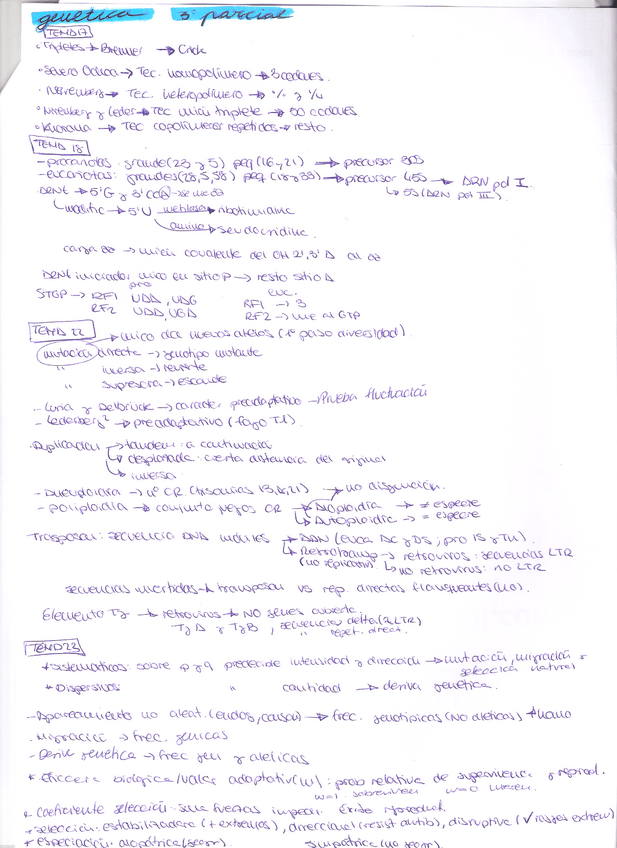 genética 3º parcial
TEMA 17
· Tripletes → Brenner → Crick
· Severo Ochoa → Tec. homopolímero → 3 codones.
· Nirenberg → Tec. heteropolímero →
· Nirenberg y Leder → Tec mini triplete → 50 codones.
· Khorana → Tec copolímeros repetidos → resto.
TEMA 18
- procariotas: grande (23 y 5) peq (16 y 21) → precursor 30S
- eucariotas: grandes (28, 5, 58) peq (18 y 33) → precursor 45S → ARN pol I.
5S (ARN pol III).
ARNt → 5'G y 3'CCA
modific → 5'U metilasa → ribotimidina
amina → seudouridina
carga aa → unión covalente del OH 2', 3' A al aa
ARNt iniciador único en sitio P → resto sitio A
pro euc.
STOP → RF1 UAA, UAG RF1 → 3
RF2 UAA, UGA RF2 → une al GTP
TEMA 22 → único da nuevos alelos (1er paso diversidad).
mutación directa → genotipo mutante
" inversa → revierte
" supresora → esconde
- Luria y Delbrück → carácter preadaptativo → Prueba fluctuación
- Lederberg² → preadaptativo (fago T1).
· Duplicación → tándem: a continuación
→ desplazada: cierta distancia del original
→ inversa
- Aneuploidía → nº CR. (trisomías 13, 18, 21) → no disyunción.
- poliploidía → conjunto juegos CR → Aloploidía → ≠ especie
→ Autoploidía → = especie
Trasposón: secuencia DNA móviles → ADN (euca AC y DS; pro IS y Tn).
→ Retrotransp → retrovirus: secuencias LTR
(no replicativo) → no retrovirus: no LTR
secuencias invertidas → trasposón vs rep. directas flanqueantes (no).
Elemento Ty → retrovirus → NO
Ty A y Ty B, secuencias delta (2 LTR)
" repet. direct.
TEMA 23
* Sistemáticos: sobre p y q predecide intensidad y dirección → mutación, migración y
selección natural
* Dispersivos " cantidad → deriva genética.
- Apareamiento no aleat. (endog, consan) → frec. genotípicas (NO alélicas) ↑ homo
- Migración → frec. génicas
- Deriva genética → frec gen y alélicas
* Eficacia biológica/valor adaptativ (w): prob relativa de supervivencia y reprod.
w=1 sobreviven w=0 mueren.
* Coeficiente selección: fuerzas Éxito reproduct.
* Selección: estabilizadora (+ extremos), direccional (resist antib), disruptiva (✓ rasgos extrem)
* especiación: alopátrica (geogr). simpátrica (no geogr).